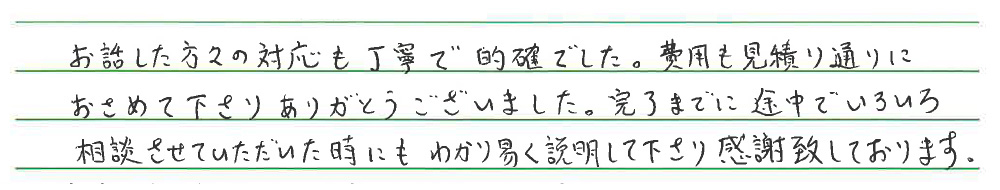 お話した方々の対応も丁寧で的確でした。費用も見積り通りに
おさめて下さりありがとうございました。完了までに途中でいろいろ
相談させていただいた時にもわかり易く説明して下さり感謝致しております。